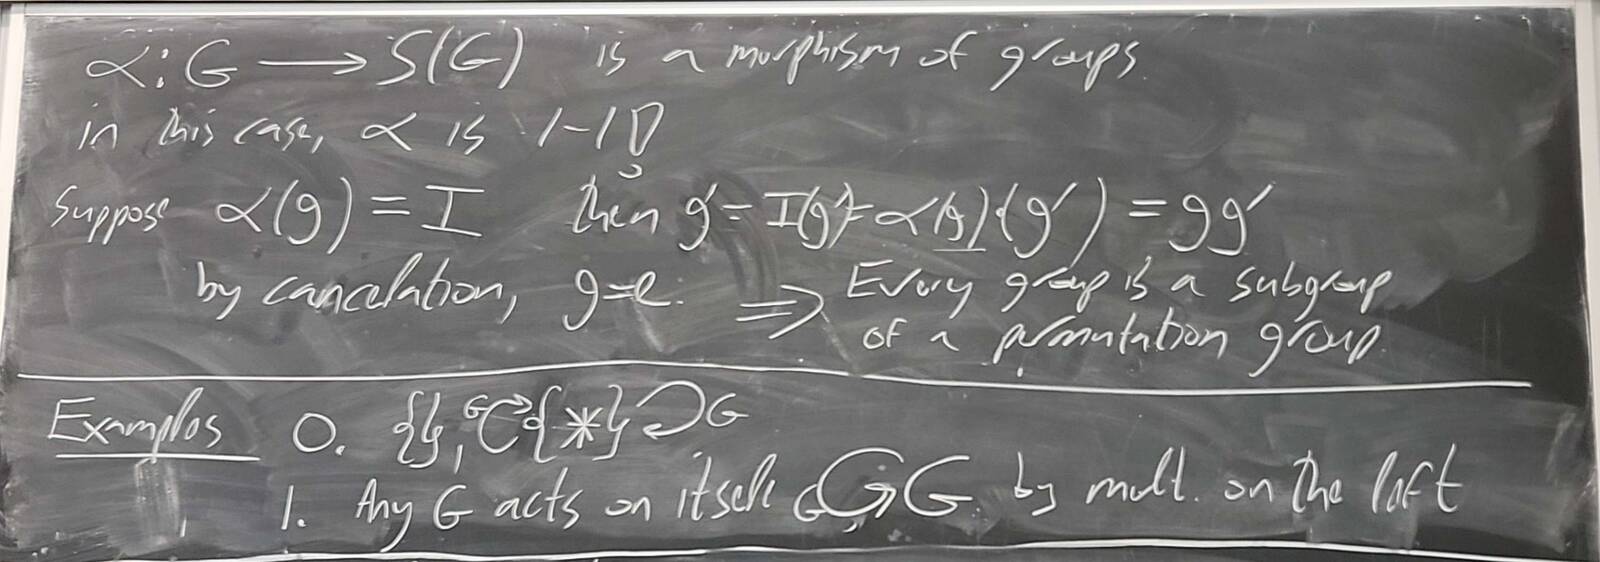 α: G → S(G) is a morphism of groups.
in this case, α is 1-1!
Suppose α(g) = I then g' = I(g') = α(g)(g') = gg'
by cancelation, g=e. ⇒ Every group is a subgroup
of a permutation group.
Examples 0. {}, G↻{*}↻G
1. Any G acts on itself G↻G by mult. on the left